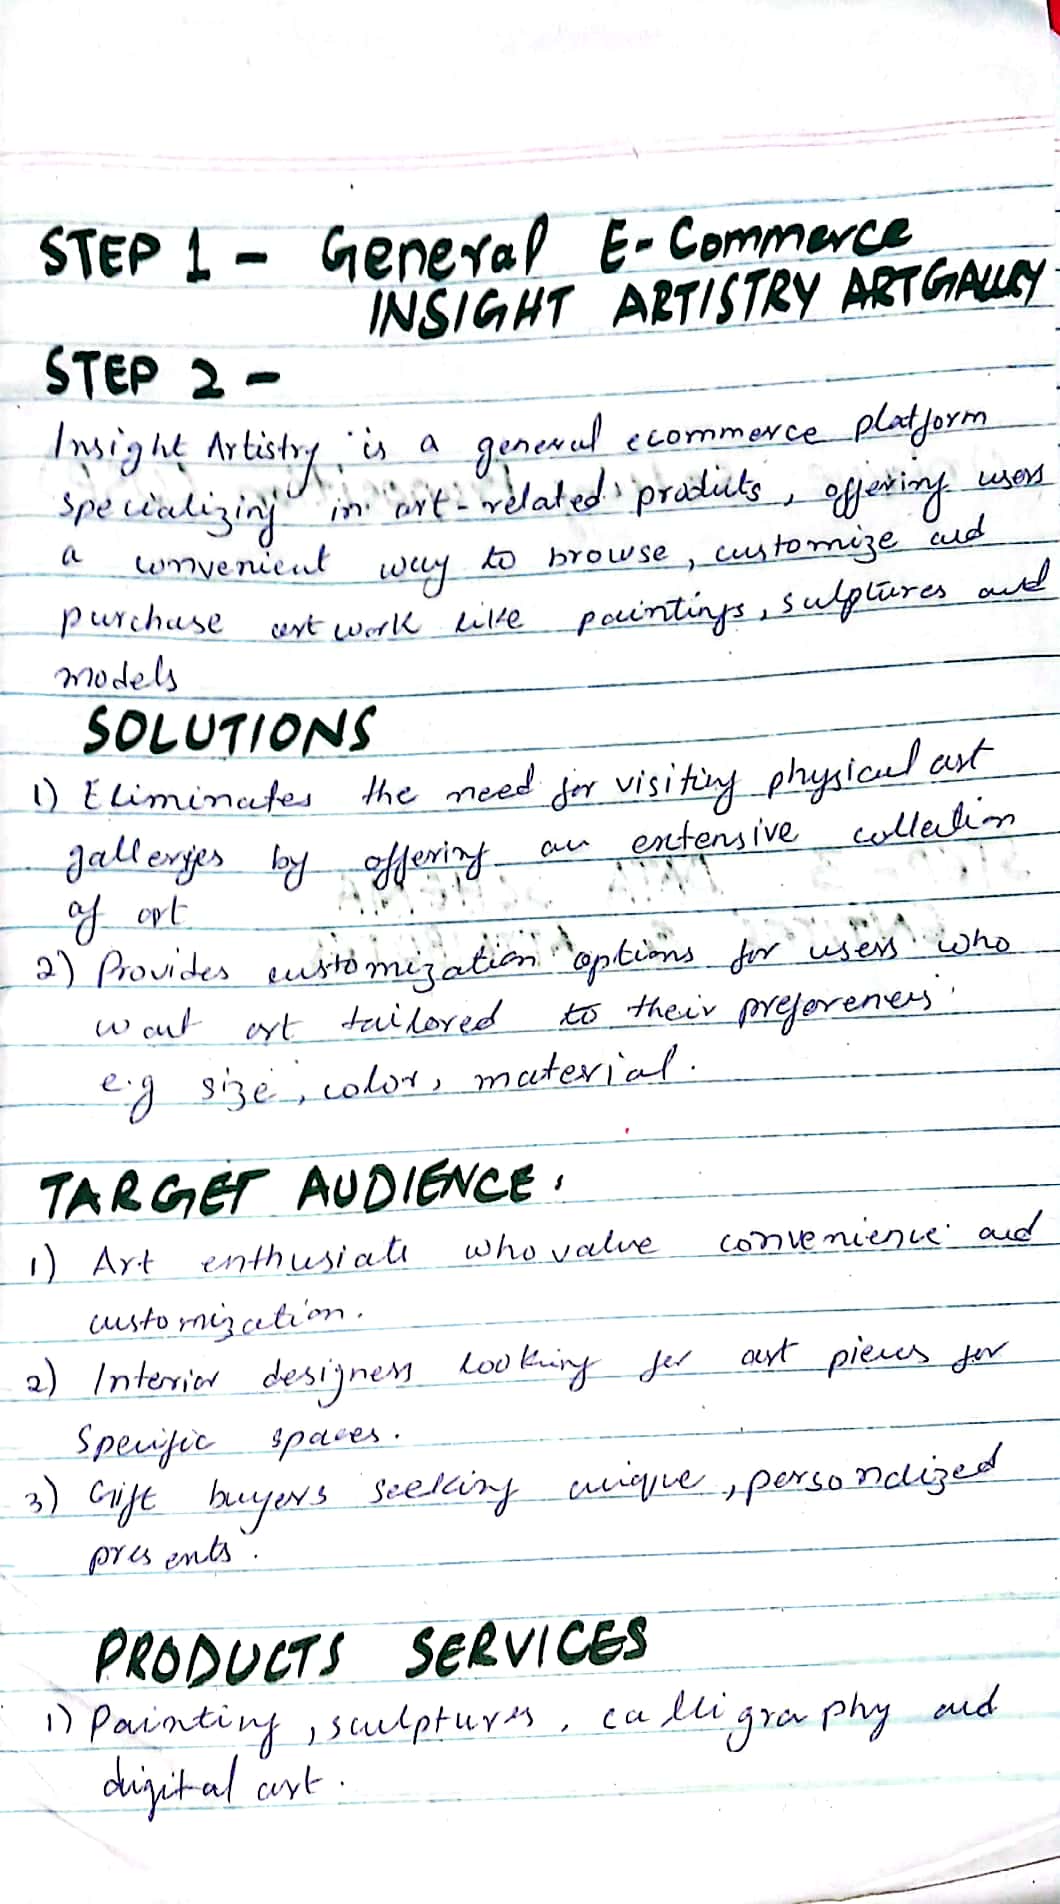 STEP 1 - General E-Commerce
INSIGHT ARTISTRY ARTGALLRY
STEP 2 -
Insight Artistry is a general ecommerce platform
specializing in art-related products, offering users
a convenient way to browse, customize and
purchase art work like paintings, sulptures and
models
SOLUTIONS
1) Eliminates the need for visiting physical art
galleries by offering an extensive collection
of art
2) Provides customization options for users who
want art tailored to their preferences
e.g size, color, material.
TARGET AUDIENCE:
1) Art enthusiats who value convenience and
customization.
2) Interior designers looking for art pieces for
Specific spaces.
3) Gift buyers seeking unique, personalized
presents.
PRODUCTS SERVICES
1) Painting, sculptures, calligraphy and
digital art.